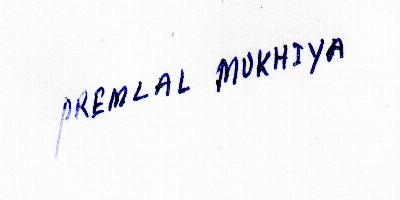 PREMLAL MUKHIYA